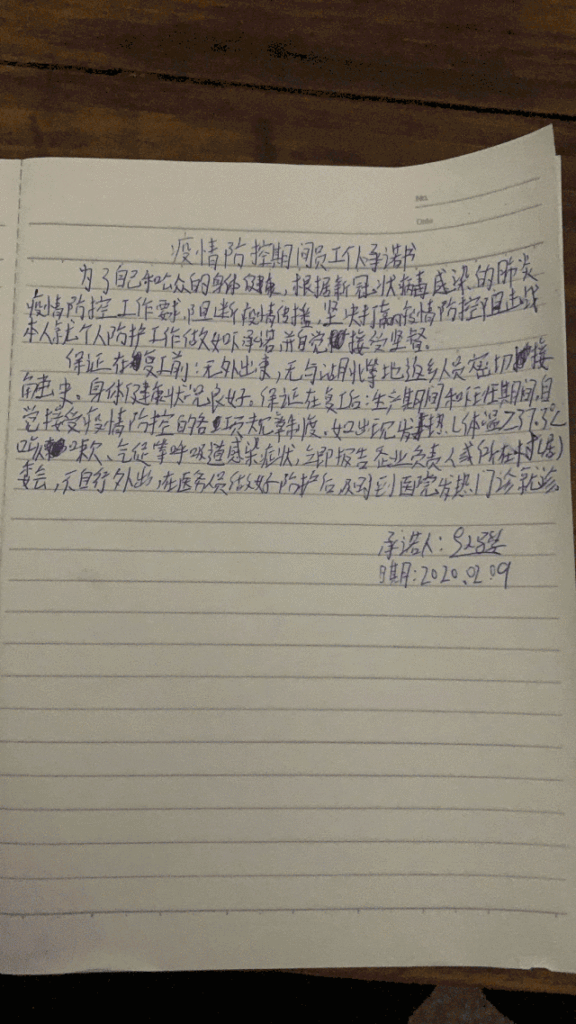 No.
Date
疫情防控期间员工个人承诺书
为了自己和公众的身体健康,根据新冠状病毒感染的肺炎
疫情防控工作要求,阻断疫情传播,坚决打赢疫情防控阻击战
本人就个人防护工作做如下承诺,并自觉接受监督.
保证在复工前:无外出史,无与湖北等地返乡人员密切接
触史.身体健康状况良好.保证在复工后:生产期间和住宿期间,自
觉接受疫情防控的各项规章制度.如出现发热(体温≥37.3℃
咳嗽、气促等呼吸道感染症状,立即报告企业负责人或所在村(居)
委会,不自行外出,在医务人员做好防护后及时到医院发热门诊就诊.
承诺人:
日期:2020.02.09